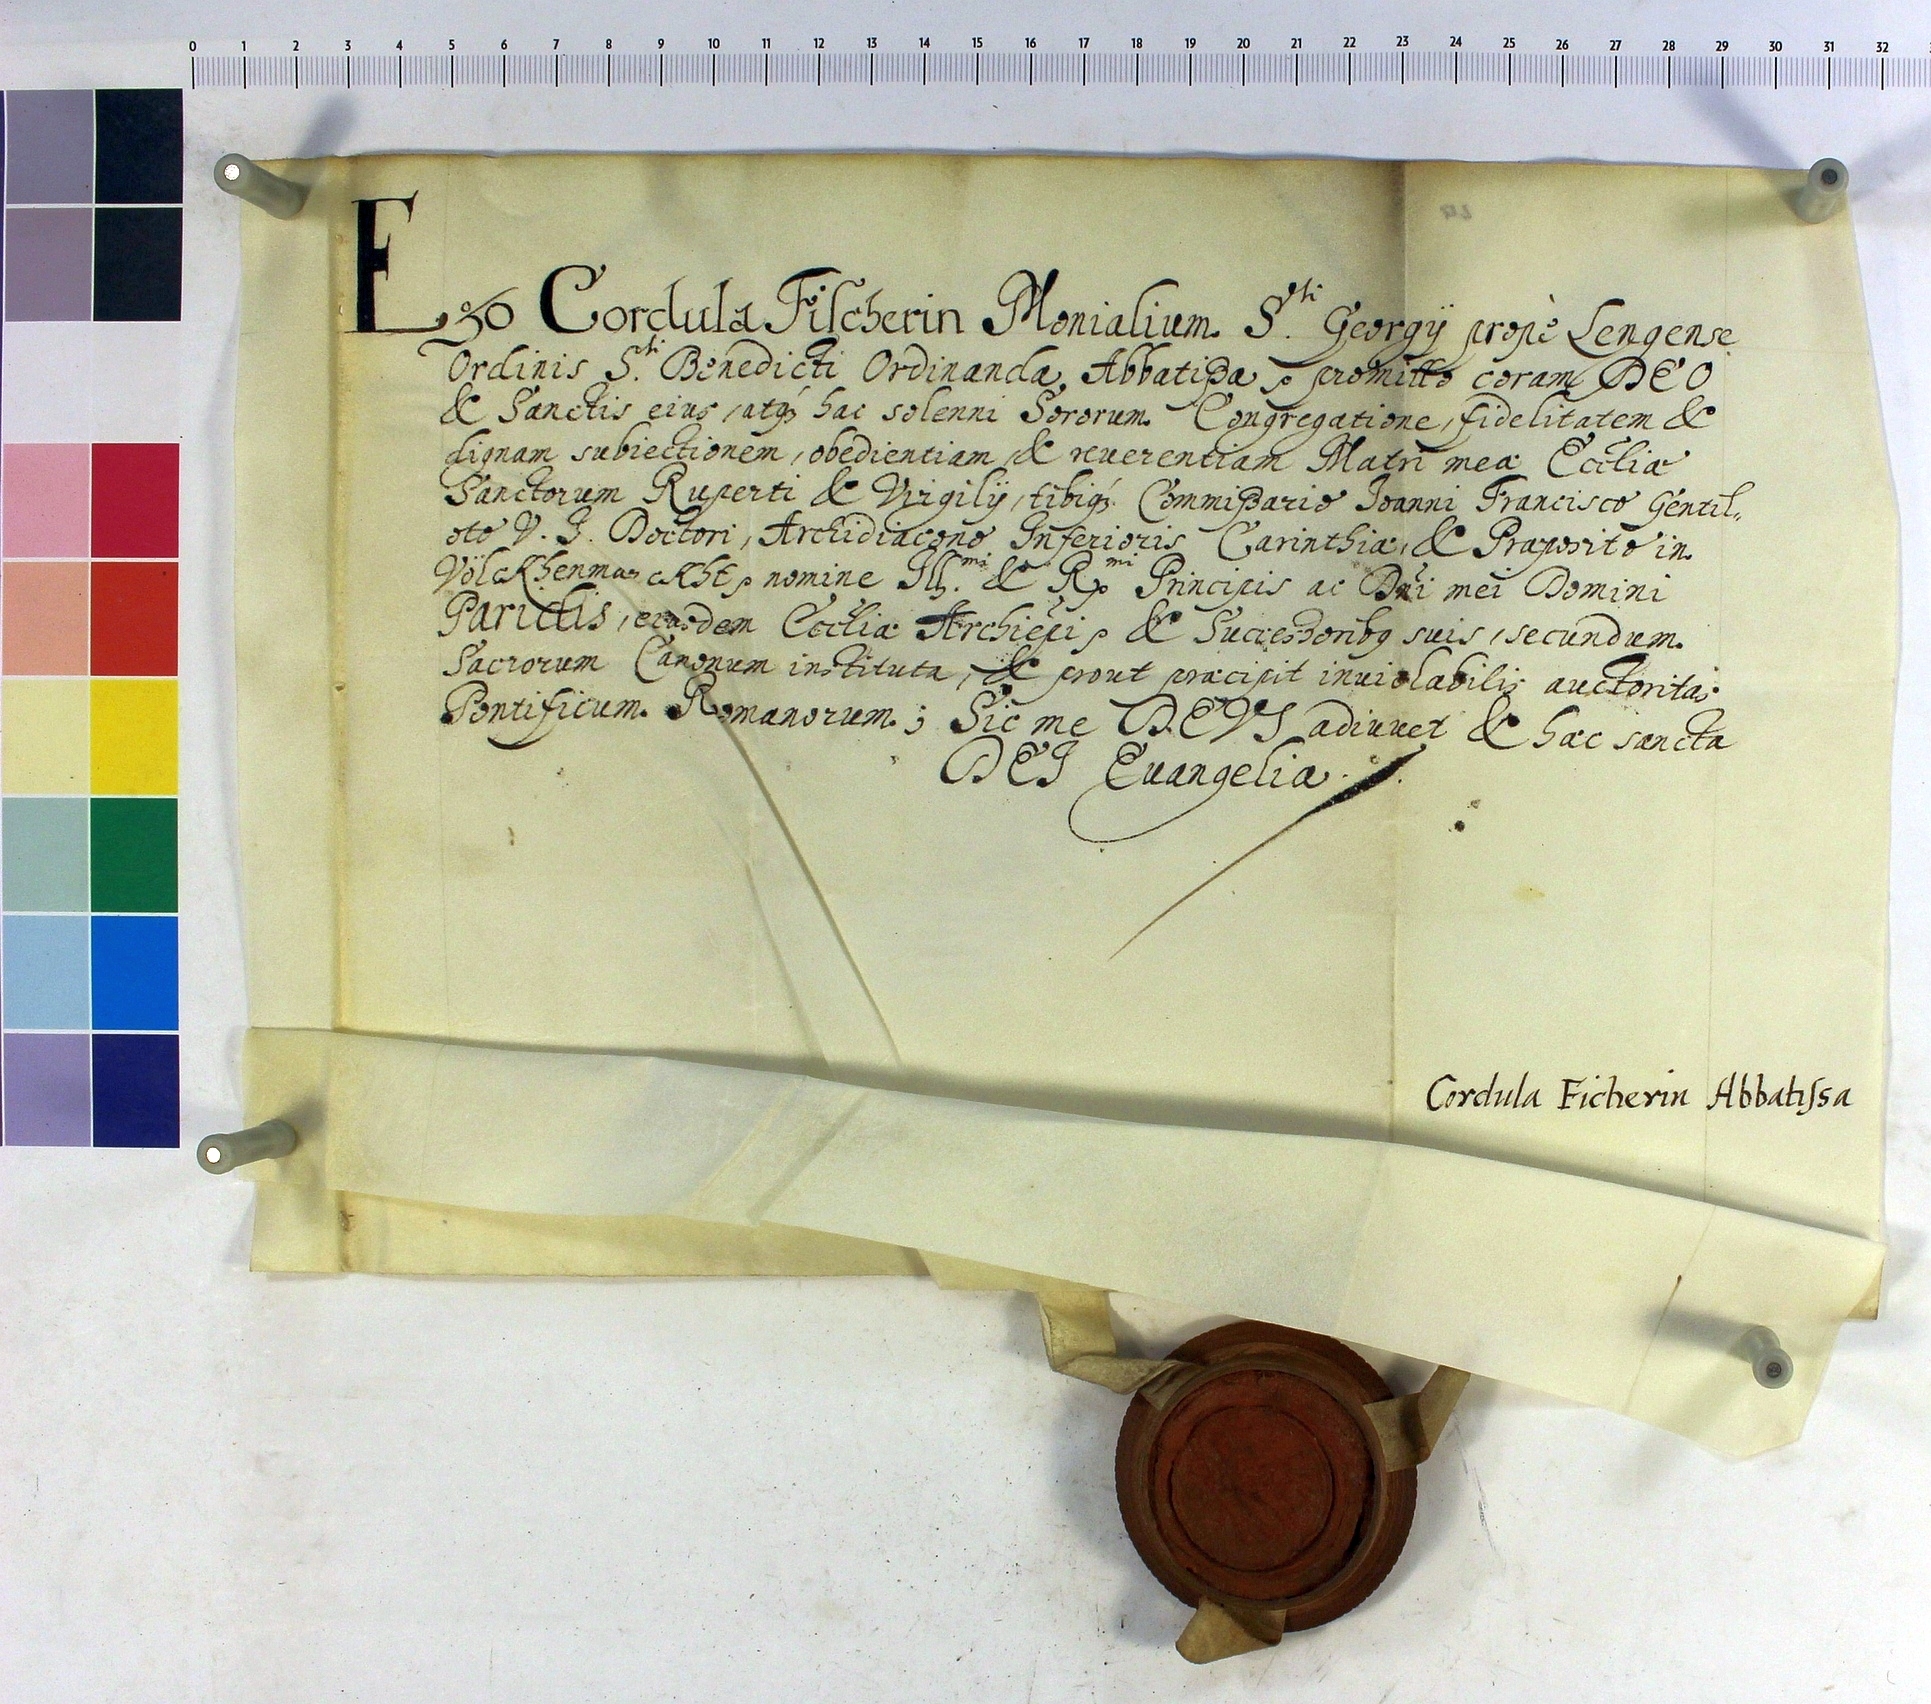 0 1 2 3 4 5 6 7 8 9 10 11 12 13 14 15 16 17 18 19 20 21 22 23 24 25 26 27 28 29 30 31 32
Ego Cordula Fischerin Monialium. S.ti Georgÿ propè Lengense
Ordinis S.ti Benedicti Ordinanda, Abbatißa, promitto coram DEO
& Sanctis eius, atq; hac solenni Sororum. Congregatione, fidelitatem &
dignam subiectionem, obedientiam, & reuerentiam Matri meæ Eccliæ
Sanctorum Ruperti & Virgilÿ, tibiq; Commißario Ioanni Francisco Gentil„
oto V. J. Doctori, Archidiacono Inferioris Carinthiæ, & Præposito in.
Völckhenmarckht, nomine Ill.mi & R.mi Principis ac Dni mei Domini
Paridis, eiusdem Eccliæ Archiepi, & Successoribq suis, secundum.
Sacrorum Canonum instituta, & prout præcipit inuiolabilis auctoritas
Pontificum. Romanorum.; Sic me DEVS adiuuet & hæc sancta
DEI Euangelia.
Cordula Ficherin Abbatissa